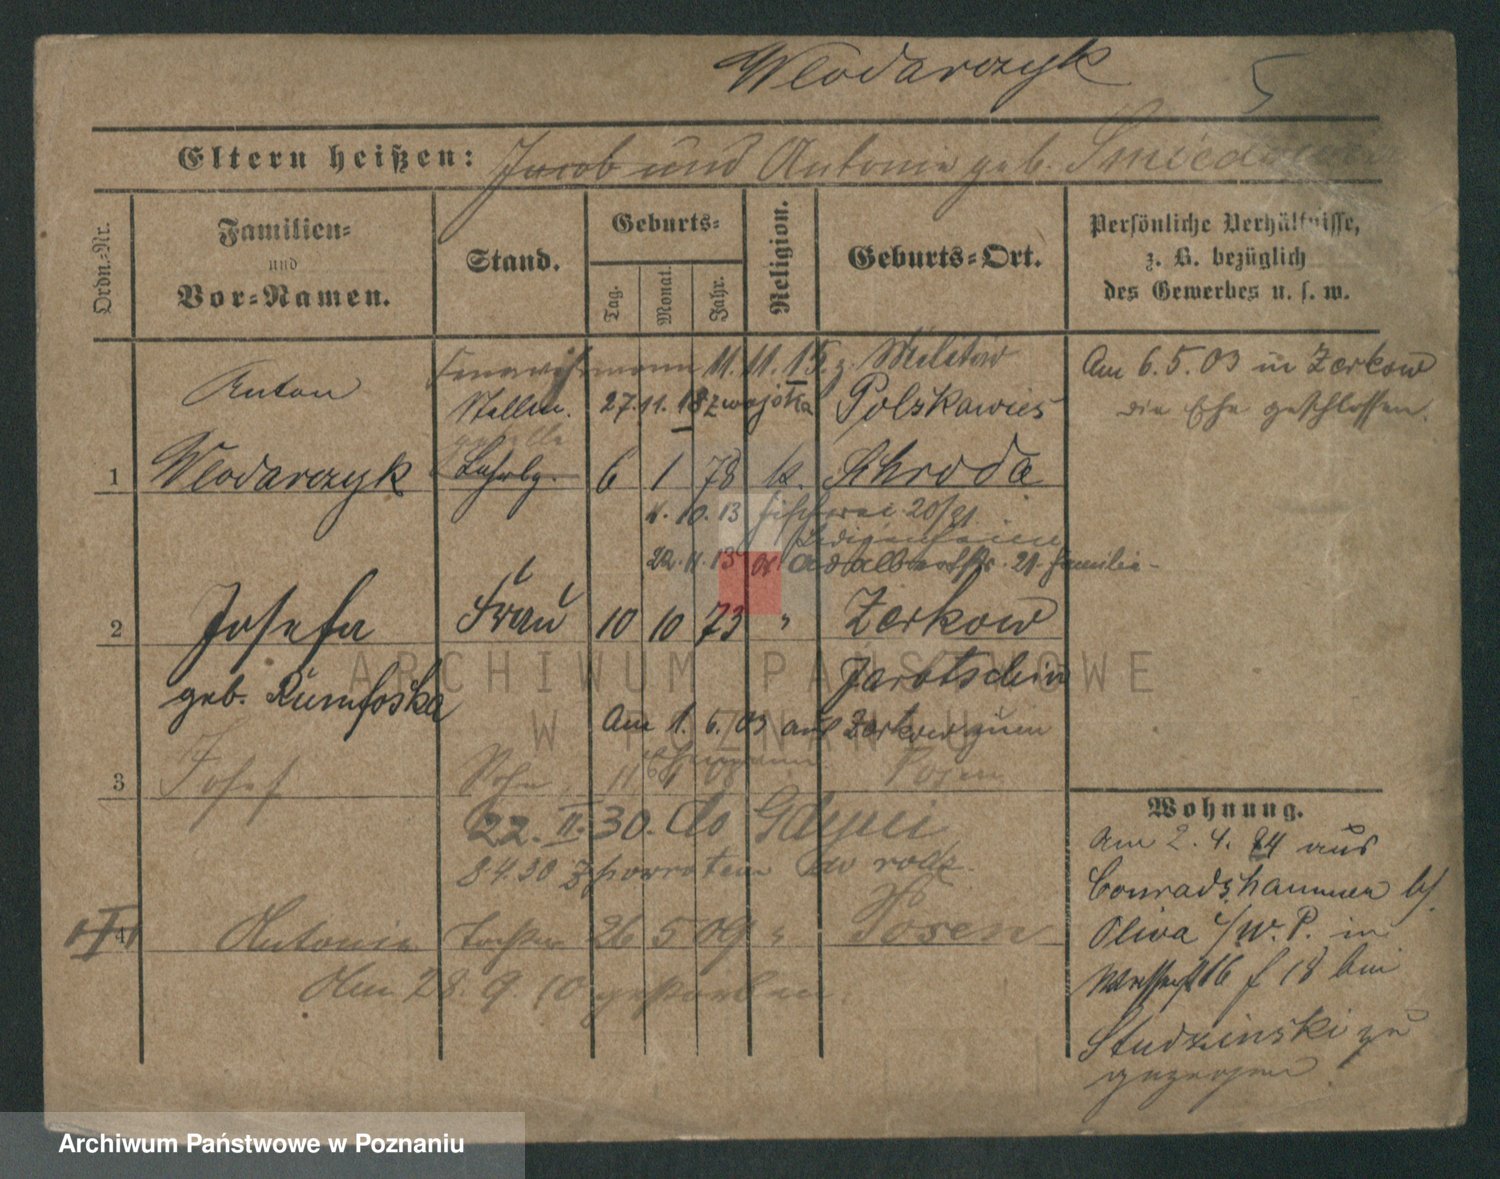 Wlodarczyk
5
Eltern heißen: Jacob und Antonie geb.
Ordn.-Nr.
Familien-
und
Vor-Namen.
Stand.
Geburts-
Tag.
Monat.
Jahr.
Religion.
Geburts-Ort.
Persönliche Verhältnisse,
z. B. bezüglich
des Gewerbes u. s. w.
11. 11. 15. z.
Anton
27. 11. 18 z wojska Polskawies
1 Wlodarczyk 6 1 78 k. Schroda
Am 6.5.03 in Zerkow
die Ehe geschlossen.
4. 10. 13 Fischerei 20/21
22. 11. 13 Adalbertstr. 21. Familie
2 Josefa Frau 10 10 73 " Zerkow
geb. Jarotschin
Am 1. 6. 03 aus Zerkow
3 Josef Sohn 11 Posen
22. II. 30. do Gdyni
8 4 30 z powrotem
4 Antonie Tochter 26 5 09 " Posen
Am 28. 9. 10 gestorben.
Wohnung.
Am 2. 4. 24 aus
Conradshammer b/
Oliva i/W. P. in
16 f 18 bei
Studzinski zu
gezogen.
ARCHIWUM PAŃSTWOWE
W POZNANIU
Archiwum Państwowe w Poznaniu